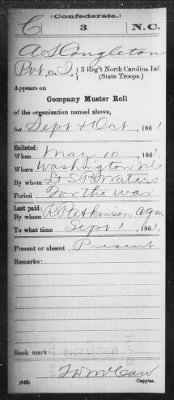 (Confederate.)
C 3 N.C.
A S Congleton
Pvt, Co. I, 3 Reg't North Carolina Inf.
(State Troops.)
Appears on
Company Muster Roll
of the organization named above,
for Sept & Oct, 1861.
Enlisted:
When May 10, 1861.
Where Washington NC
By whom Lt S B Waters
Period For the war
Last paid:
By whom R P Atkinson AQM
To what time Sept 1, 1861.
Present or absent Present
Remarks:
Book mark:
(642)
Copyist.